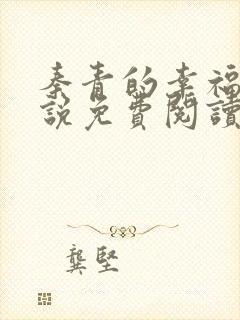 秦青的幸福
說免費閱讀
龔堅